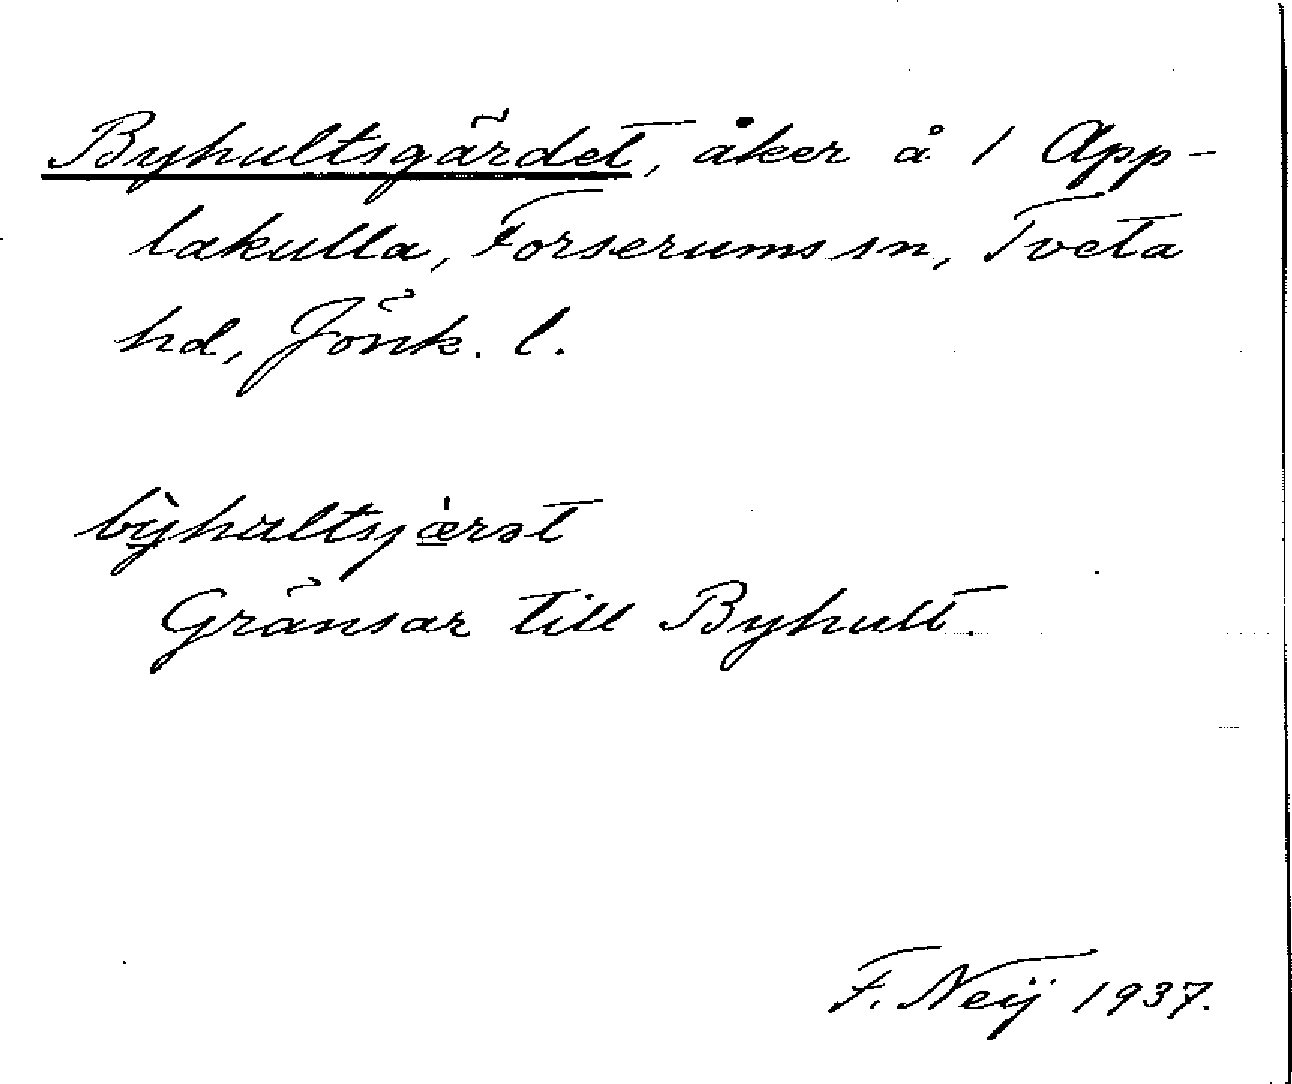 Byhultsgärdet, åker å 1 App-
lakulla, Forserums sn, Tveta
hd, Jönk. l.
bỳ̱hultsjæ̱̍rət
Gränsar till Byhult.
F. Neij 1937.